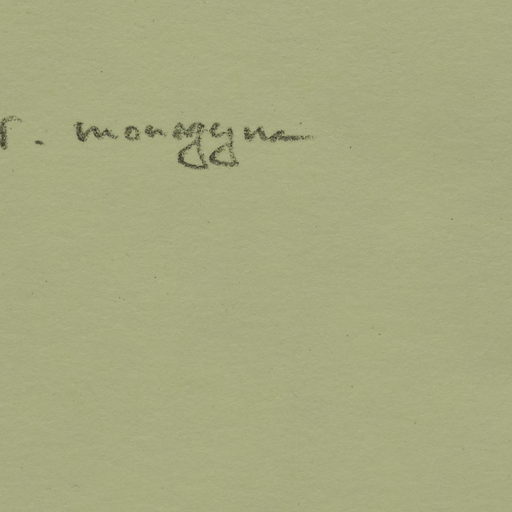 r. monogyna